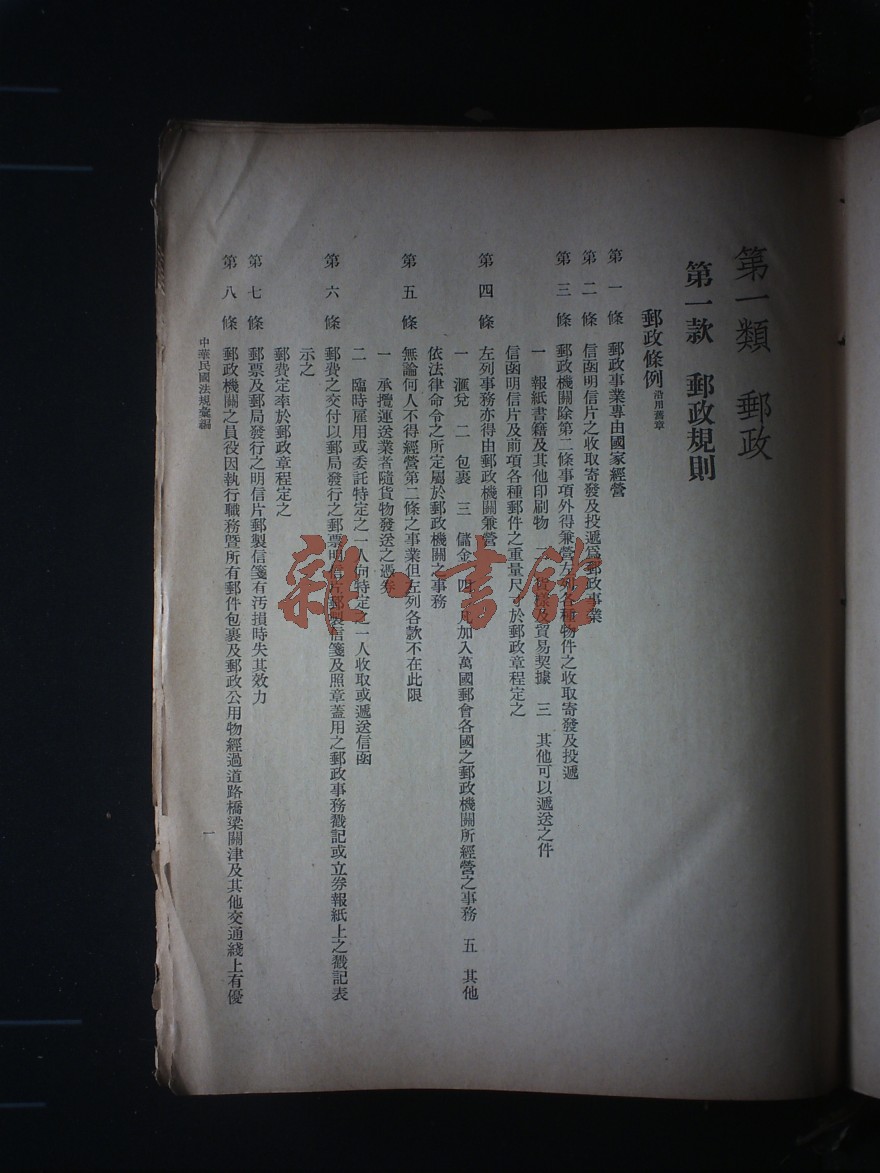 第一類　郵政
第一款　郵政規則
郵政條例沿用舊章
第一條　郵政事業專由國家經營
第二條　信函明信片之收取寄發及投遞爲郵政事業
第三條　郵政機關除第二條事項外得兼營左列各種物件之收取寄發及投遞
一　報紙書籍及其他印刷物　二　貨樣及貿易契據　三　其他可以遞送之件
信函明信片及前項各種郵件之重量尺寸於郵政章程定之
第四條　左列事務亦得由郵政機關兼營
一　滙兌　二　包裹　三　儲金　四　凡加入萬國郵會各國之郵政機關所經營之事務　五　其他
依法律命令之所定屬於郵政機關之事務
第五條　無論何人不得經營第二條之事業但左列各款不在此限
一　承攬運送業者隨貨物發送之憑券
二　臨時雇用或委託特定之一人向特定之一人收取或遞送信函
第六條　郵費之交付以郵局發行之郵票明信片郵製信箋及照章蓋用之郵政事務戳記或立券報紙上之戳記表
示之
郵費定率於郵政章程定之
第七條　郵票及郵局發行之明信片郵製信箋有汚損時失其效力
第八條　郵政機關之員役因執行職務曁所有郵件包裹及郵政公用物經過道路橋梁關津及其他交通綫上有優
中華民國法規彙編
一
雜·書館